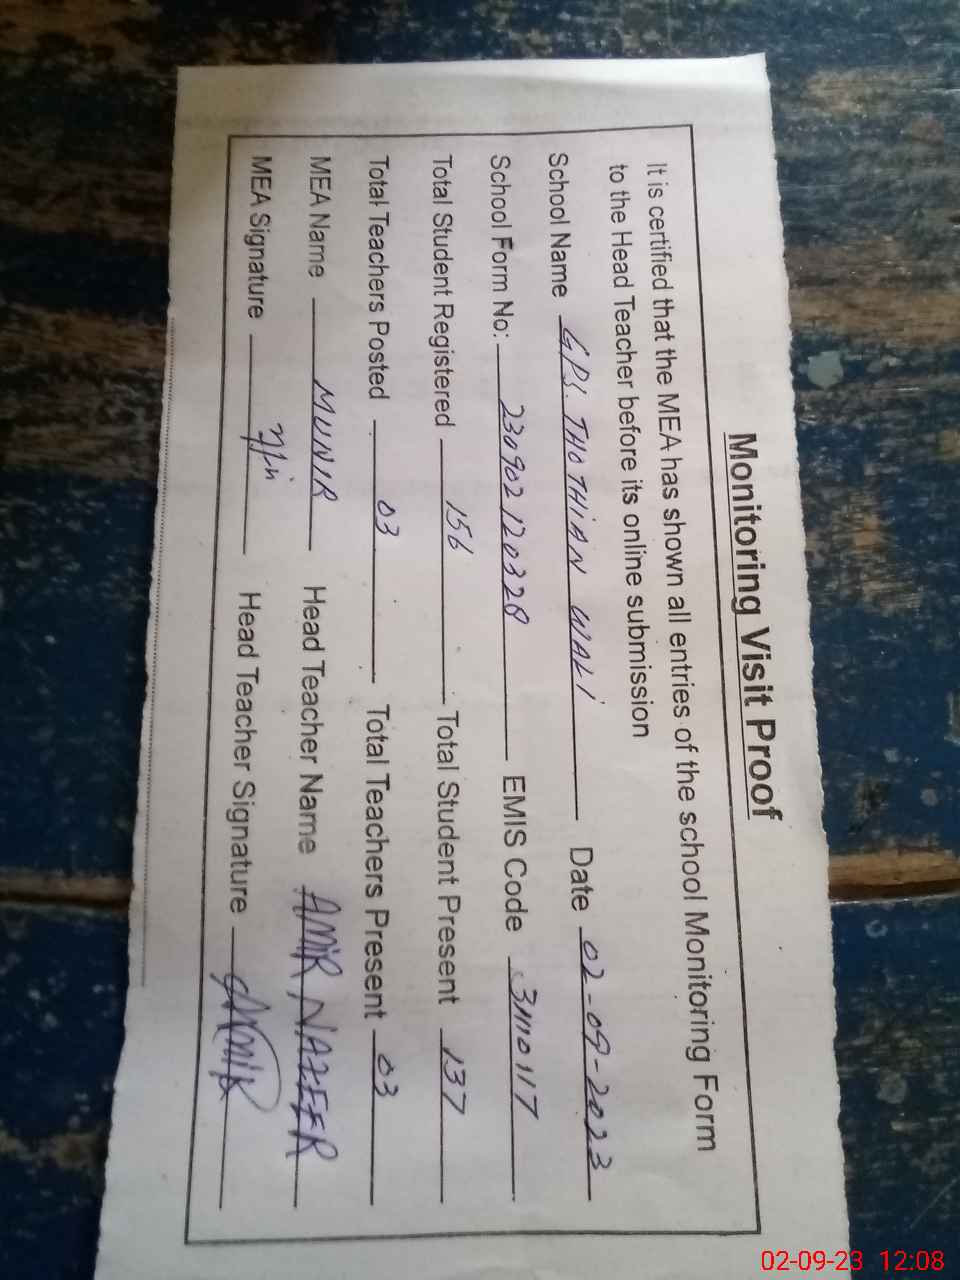 Monitoring Visit Proof
It is certified that the MEA has shown all entries of the school Monitoring Form
to the Head Teacher before its online submission
School Name GPS. THOTHIAN WALI Date 02-09-2023
School Form No: 230902120328 EMIS Code 31110117
Total Student Registered 156 Total Student Present 137
Total Teachers Posted 03 Total Teachers Present 03
MEA Name MUNIR Head Teacher Name AMIR NAZEER
MEA Signature Head Teacher Signature AMIR
02-09-23 12:08